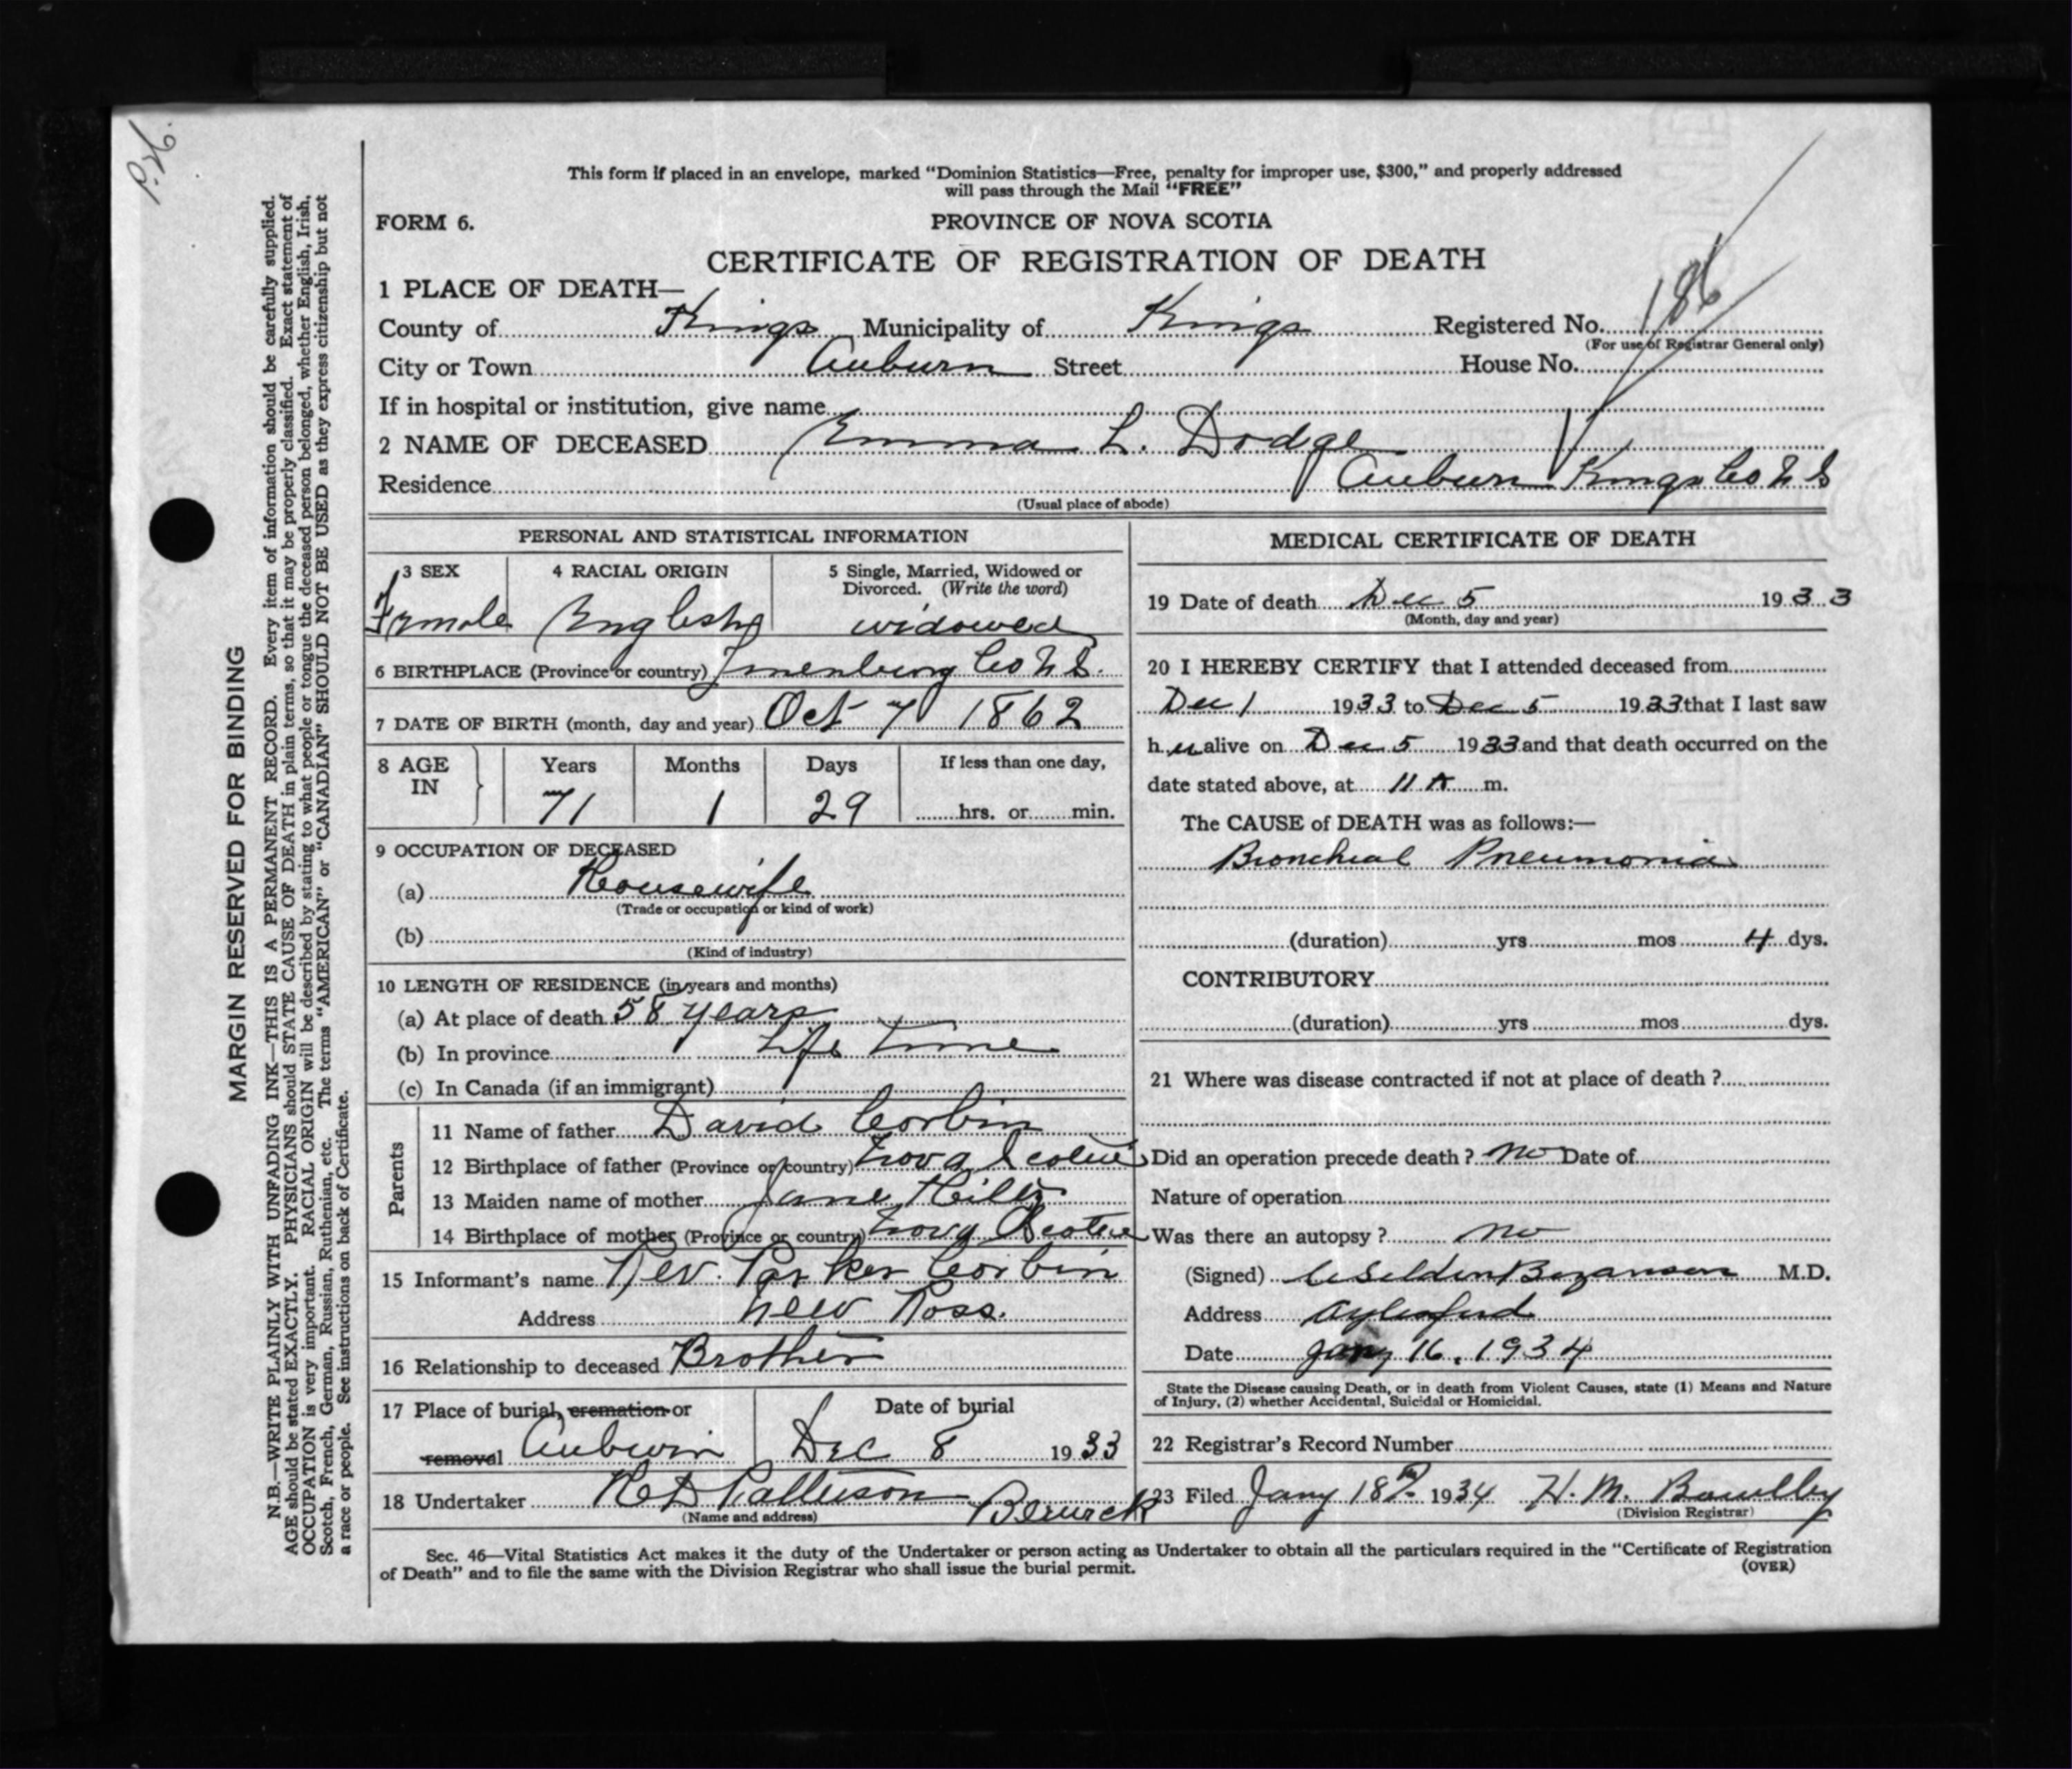 P.26.
This form if placed in an envelope, marked “Dominion Statistics—Free, penalty for improper use, $300,” and properly addressed
will pass through the Mail “FREE”
FORM 6. PROVINCE OF NOVA SCOTIA
CERTIFICATE OF REGISTRATION OF DEATH
186
1 PLACE OF DEATH—
County of Kings Municipality of Kings Registered No.
(For use of Registrar General only)
City or Town Auburn Street House No.
If in hospital or institution, give name
2 NAME OF DECEASED Emma L. Dodge
Residence Auburn Kings Co N S
(Usual place of abode)
PERSONAL AND STATISTICAL INFORMATION
3 SEX 4 RACIAL ORIGIN 5 Single, Married, Widowed or
Divorced. (Write the word)
Female English widowed
6 BIRTHPLACE (Province or country) Lunenburg Co N S.
7 DATE OF BIRTH (month, day and year) Oct 7 1862
8 AGE Years Months Days If less than one day,
IN
71 1 29 hrs. or min.
9 OCCUPATION OF DECEASED
(a) Housewife
(Trade or occupation or kind of work)
(b)
(Kind of industry)
10 LENGTH OF RESIDENCE (in years and months)
(a) At place of death 58 years
(b) In province Life Time
(c) In Canada (if an immigrant)
Parents
11 Name of father David Corbin
12 Birthplace of father (Province or country) Nova Scotia
13 Maiden name of mother Jane Hiltz
14 Birthplace of mother (Province or country) Nova Scotia
15 Informant’s name Rev. Parker Corbin
Address New Ross.
16 Relationship to deceased Brother
17 Place of burial, cremation or Date of burial
removal Auburn Dec 8 1933
18 Undertaker Patterson Berwick
(Name and address)
MEDICAL CERTIFICATE OF DEATH
19 Date of death Dec 5 1933
(Month, day and year)
20 I HEREBY CERTIFY that I attended deceased from
Dec 1 1933 to Dec 5 1933 that I last saw
h er alive on Dec 5 1933 and that death occurred on the
date stated above, at 11 A m.
The CAUSE of DEATH was as follows:—
Bronchial Pneumonia
(duration) yrs mos 4 dys.
CONTRIBUTORY
(duration) yrs mos dys.
21 Where was disease contracted if not at place of death ?
Did an operation precede death ? no Date of
Nature of operation
Was there an autopsy ? no
(Signed) Selden Bezanson M.D.
Address Aylesford
Date Jany 16, 1934
State the Disease causing Death, or in death from Violent Causes, state (1) Means and Nature
of Injury, (2) whether Accidental, Suicidal or Homicidal.
22 Registrar’s Record Number
23 Filed Jany 18th 1934 H. M. Bowlby
(Division Registrar)
Sec. 46—Vital Statistics Act makes it the duty of the Undertaker or person acting as Undertaker to obtain all the particulars required in the “Certificate of Registration
of Death” and to file the same with the Division Registrar who shall issue the burial permit.
(OVER)
MARGIN RESERVED FOR BINDING
N.B.—WRITE PLAINLY WITH UNFADING INK—THIS IS A PERMANENT RECORD. Every item of information should be carefully supplied.
AGE should be stated EXACTLY. PHYSICIANS should STATE CAUSE OF DEATH in plain terms, so that it may be properly classified. Exact statement of
OCCUPATION is very important. RACIAL ORIGIN will be described by stating to what people or tongue the deceased person belonged, whether English, Irish,
Scotch, French, German, Russian, Ruthenian, etc. The terms “AMERICAN” or “CANADIAN” SHOULD NOT BE USED as they express citizenship but not
a race or people. See instructions on back of Certificate.